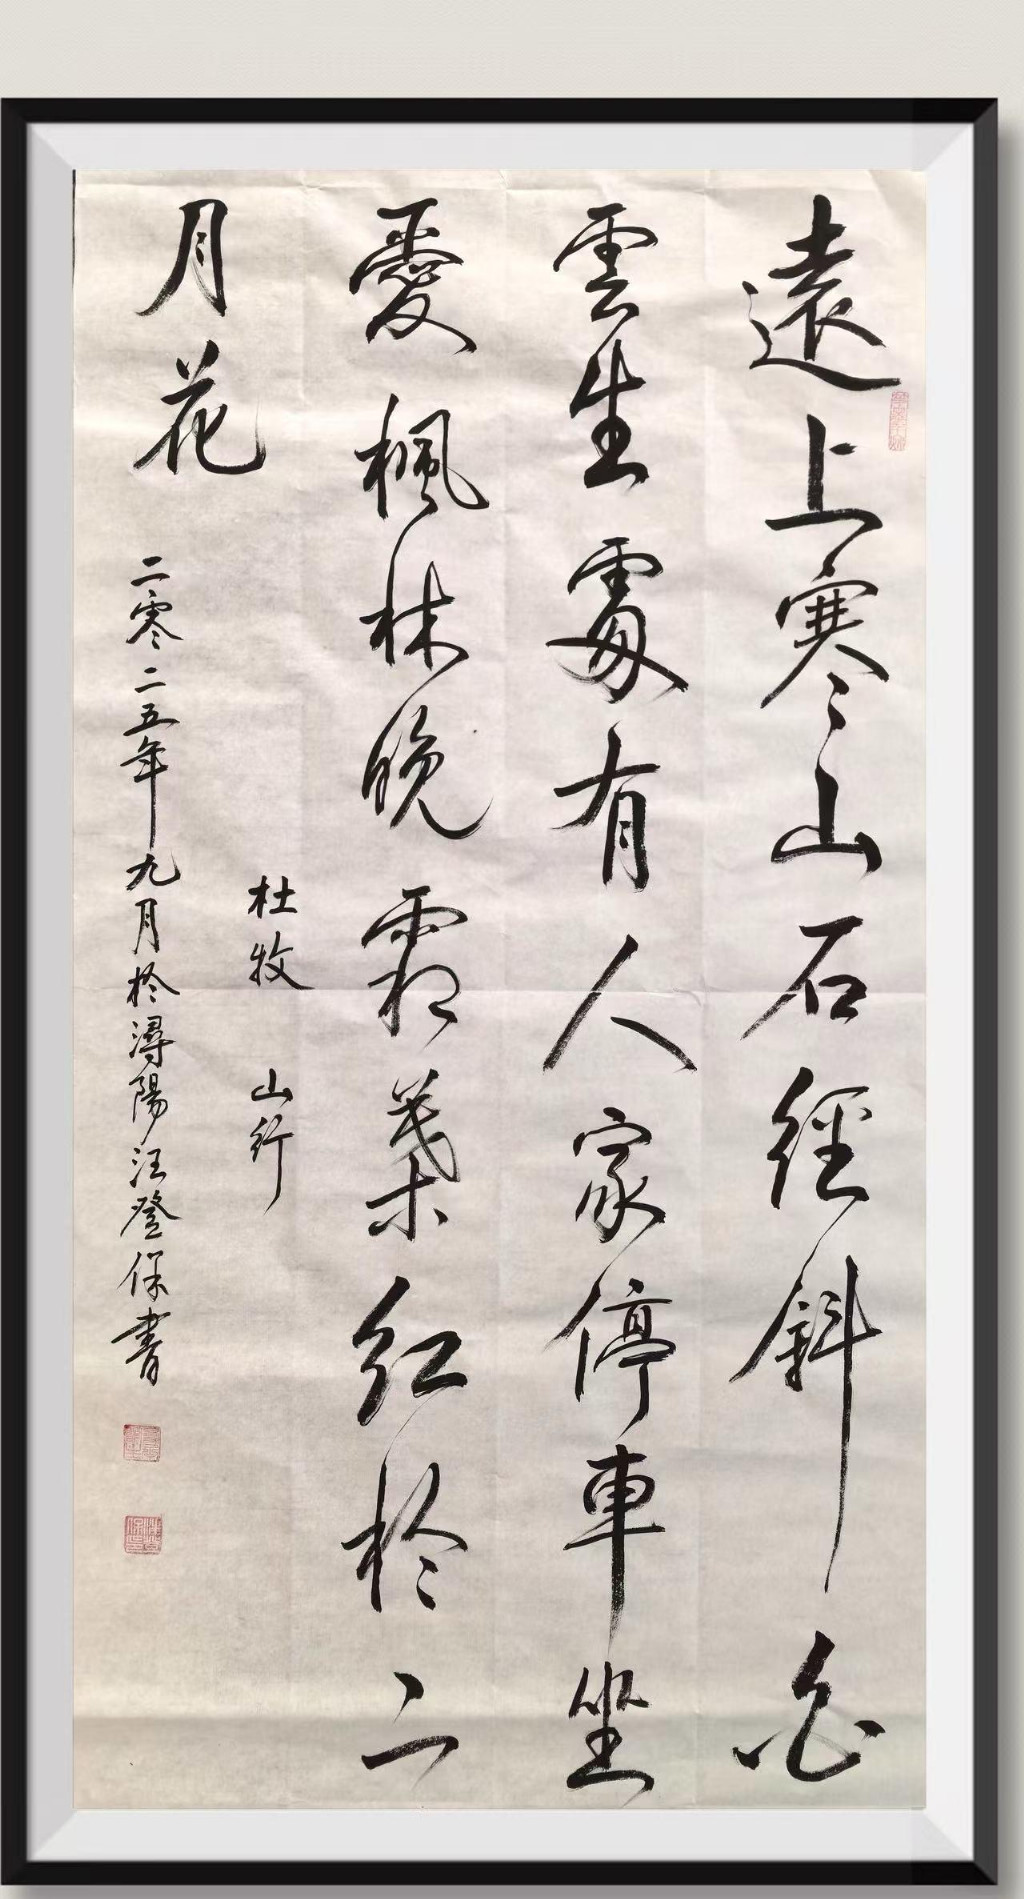 遠上寒山石經斜白
雲生處有人家停車坐
愛楓林晚霜葉紅於二
月花
杜牧 山行
二零二五年九月於潯陽汪登保書